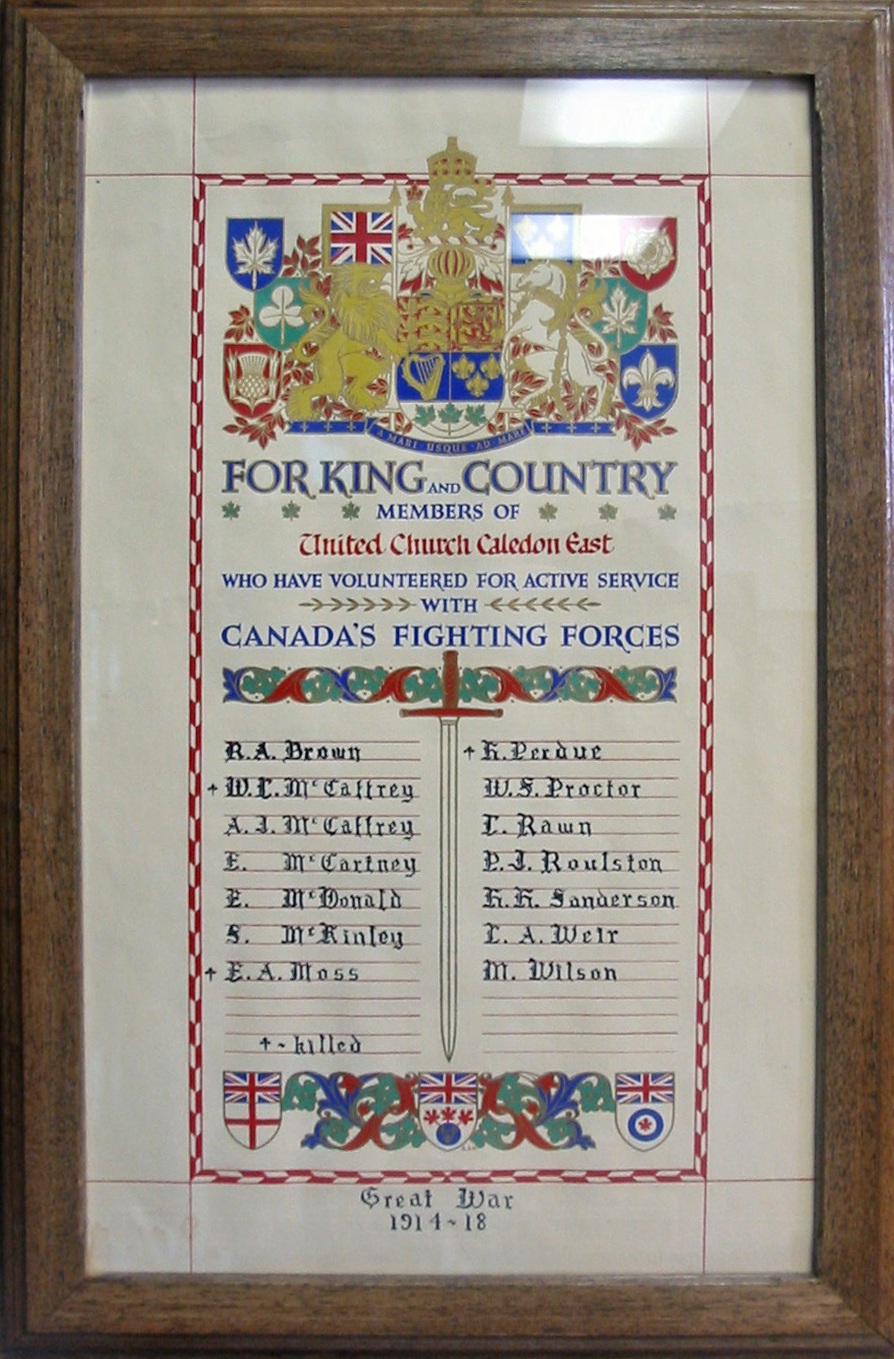 A MARI · USQUE · AD · MARE
FOR KING AND COUNTRY
MEMBERS OF
United Church Caledon East
WHO HAVE VOLUNTEERED FOR ACTIVE SERVICE
WITH
CANADA'S FIGHTING FORCES
R.A. Brown
† W.L. McCaffrey
A.J. McCaffrey
E. McCartney
E. McDonald
S. McKinley
† E.A. Moss
† - killed
† H. Perdue
W.S. Proctor
L. Rawn
P.J. Roulston
H.H. Sanderson
L.A. Weir
M. Wilson
Great War
1914-18